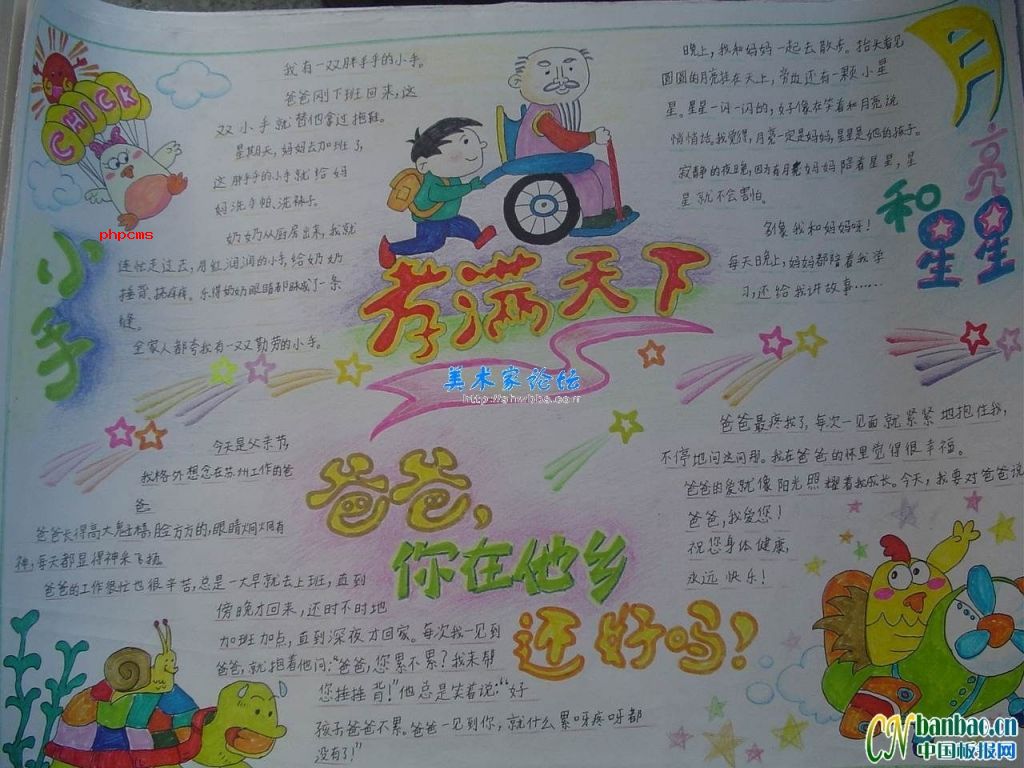 CHICK
phpcms
小手
我有一双胖乎乎的小手。
爸爸刚下班回来,这
双小手就替他拿过拖鞋。
星期天,妈妈去加班了,
这胖乎乎的小手就给妈
妈洗手帕、洗袜子。
奶奶从厨房出来,我就
连忙走过去,用红润润的小手,给奶奶
捶背、挠痒痒。乐得奶奶眼睛都眯成了一条
缝。
全家人都夸我有一双勤劳的小手。
孝满天下
美术家论坛
月亮和星星
晚上,我和妈妈一起去散步。抬头看见
圆圆的月亮挂在天上,旁边还有一颗小星
星。星星一闪一闪的,好像在笑着和月亮说
悄悄话。我觉得,月亮一定是妈妈,星星是他的孩子。
寂静的夜晚,因为有月亮妈妈陪着星星,星
星就不会害怕。
多像我和妈妈呀!
每天晚上,妈妈都陪着我学
习,还给我讲故事……
爸爸,
你在他乡
还好吗?!
今天是父亲节,
我格外想念在苏州工作的爸
爸
爸爸长得高大魁梧,脸方方的,眼睛炯炯有
神,每天都显得神采飞扬
爸爸的工作很忙也很辛苦,总是一大早就去上班,直到
傍晚才回来,还时不时地
加班加点,直到深夜才回家。每次我一见到
爸爸,就抱着他问:“爸爸,您累不累?我来帮
您捶捶背!”他总是笑着说:“好
孩子爸爸不累。爸爸一见到你,就什么累呀疼呀都
没有了!”
爸爸最疼我了,每次一见面就紧紧地抱住我,
不停地问这问那。我在爸爸的怀里觉得很幸福。
爸爸的爱就像阳光照耀着我成长。今天,我要对爸爸说
爸爸,我爱您!
祝您身体健康,
永远快乐!
CN banbao.cn
中国板报网